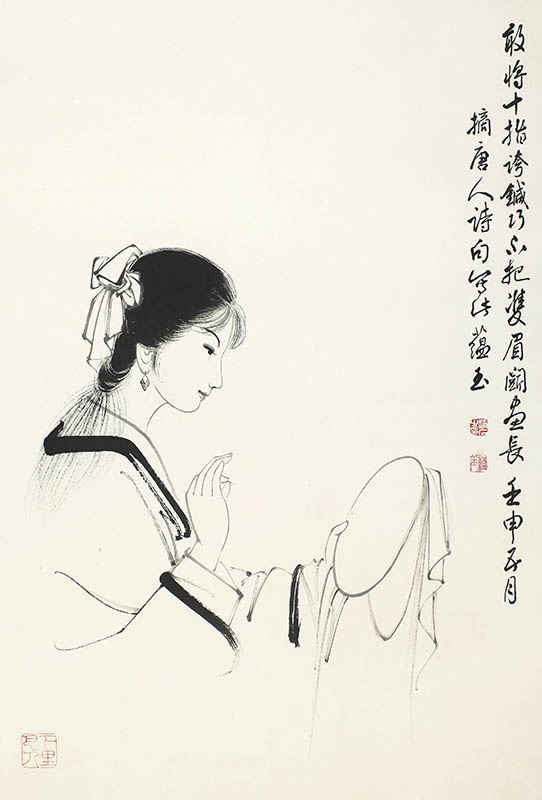 敢将十指誇鍼巧不把雙眉闘畫長 壬申五月
摘唐人詩句写此 蘊玉